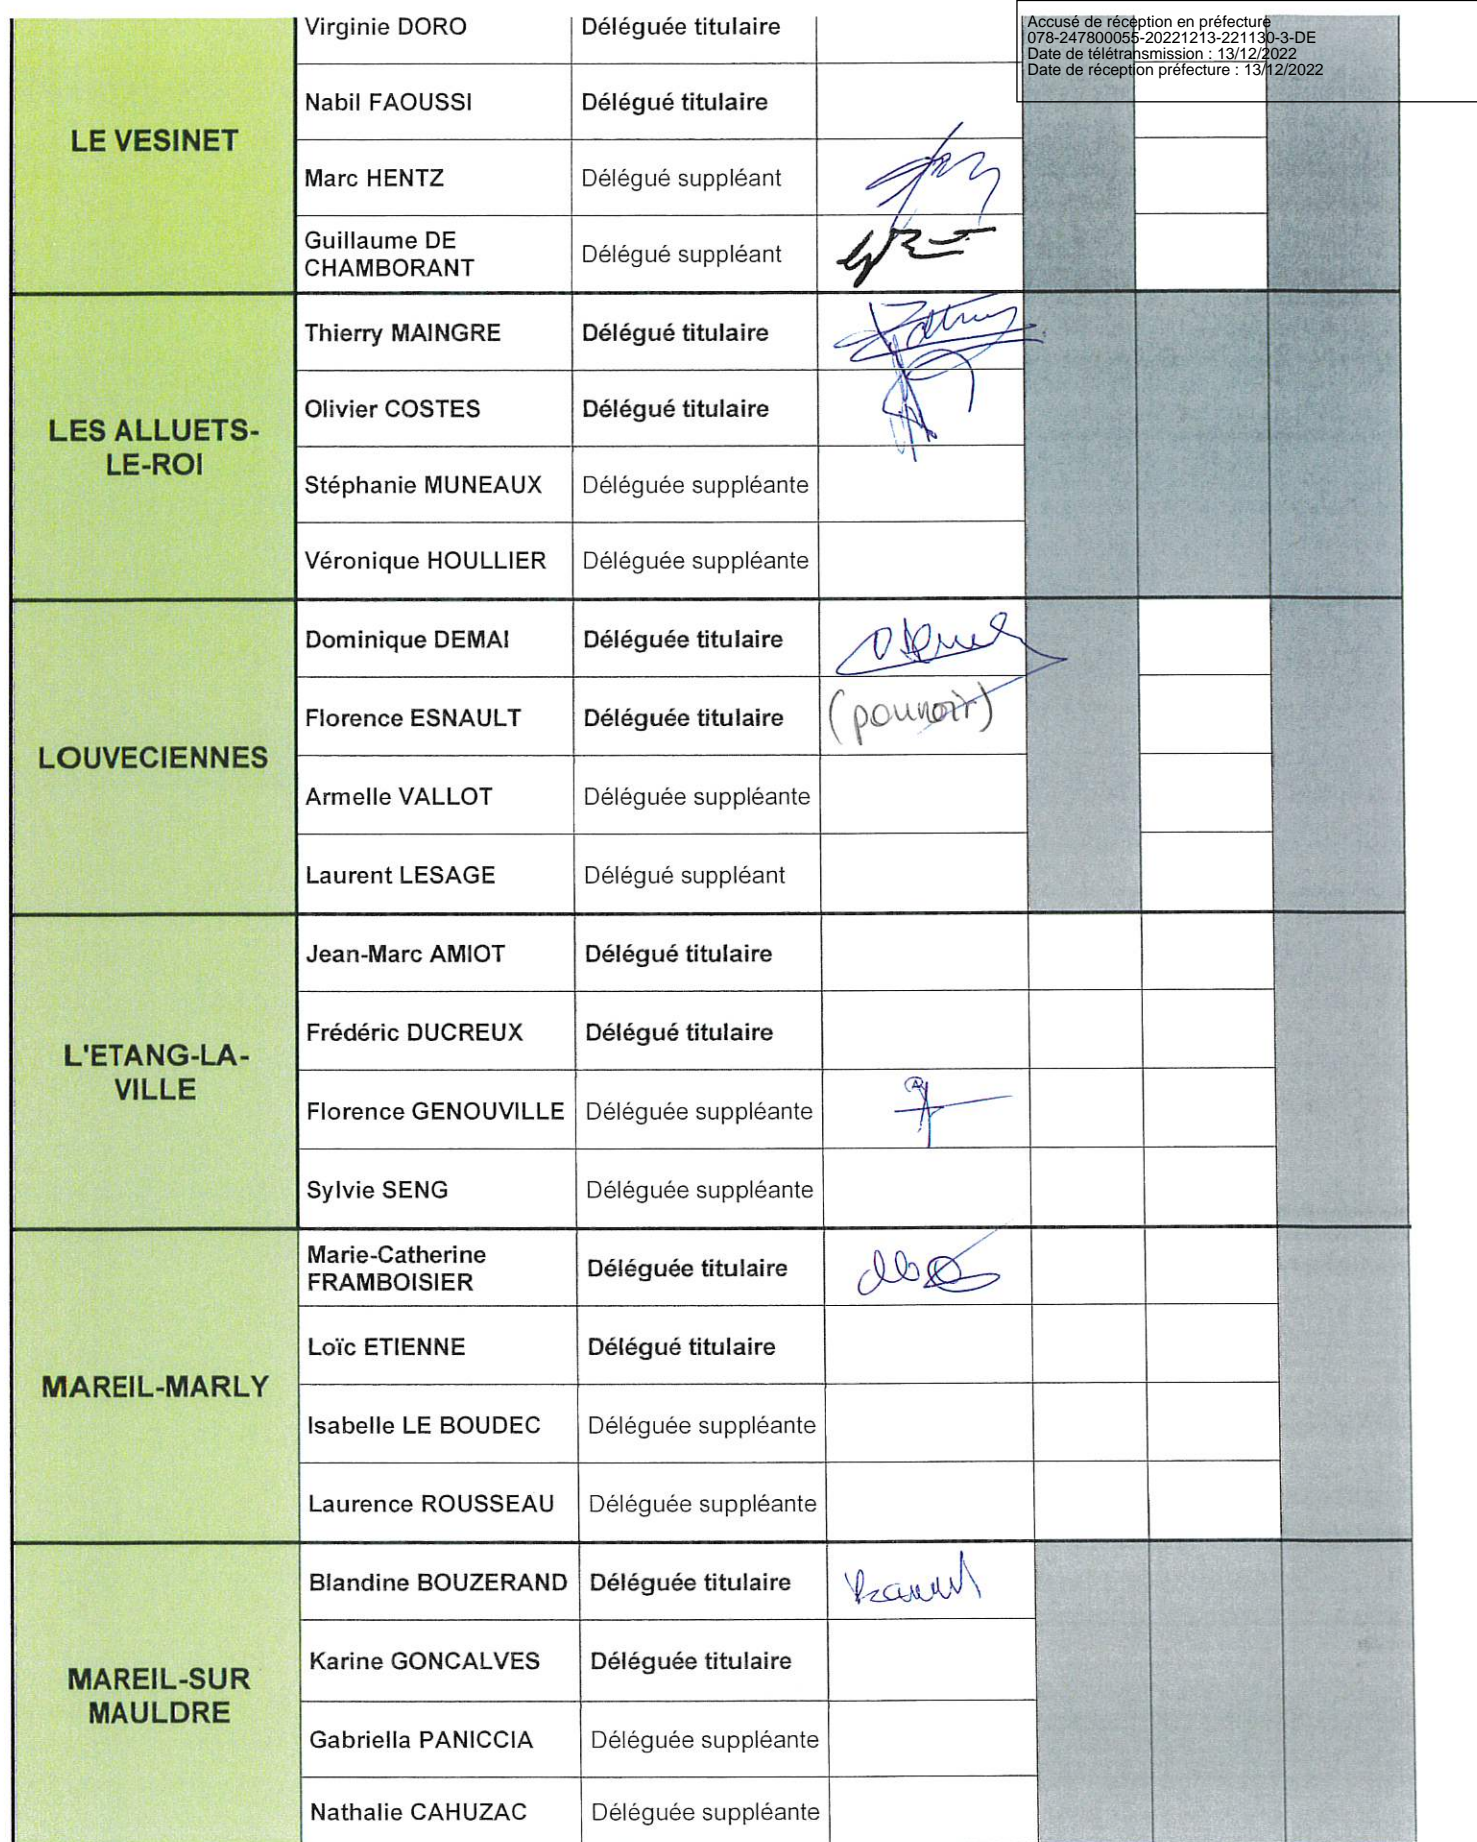 Accusé de réception en préfecture
078-247800055-20221213-221130-3-DE
Date de télétransmission : 13/12/2022
Date de réception préfecture : 13/12/2022
LE VESINET
Virginie DORO Déléguée titulaire
Nabil FAOUSSI Délégué titulaire
Marc HENTZ Délégué suppléant
Guillaume DE
CHAMBORANT Délégué suppléant
LES ALLUETS-
LE-ROI
Thierry MAINGRE Délégué titulaire
Olivier COSTES Délégué titulaire
Stéphanie MUNEAUX Déléguée suppléante
Véronique HOULLIER Déléguée suppléante
LOUVECIENNES
Dominique DEMAI Déléguée titulaire
Florence ESNAULT Déléguée titulaire (pouvoir)
Armelle VALLOT Déléguée suppléante
Laurent LESAGE Délégué suppléant
L'ETANG-LA-
VILLE
Jean-Marc AMIOT Délégué titulaire
Frédéric DUCREUX Délégué titulaire
Florence GENOUVILLE Déléguée suppléante
Sylvie SENG Déléguée suppléante
MAREIL-MARLY
Marie-Catherine
FRAMBOISIER Déléguée titulaire
Loïc ETIENNE Délégué titulaire
Isabelle LE BOUDEC Déléguée suppléante
Laurence ROUSSEAU Déléguée suppléante
MAREIL-SUR
MAULDRE
Blandine BOUZERAND Déléguée titulaire
Karine GONCALVES Déléguée titulaire
Gabriella PANICCIA Déléguée suppléante
Nathalie CAHUZAC Déléguée suppléante